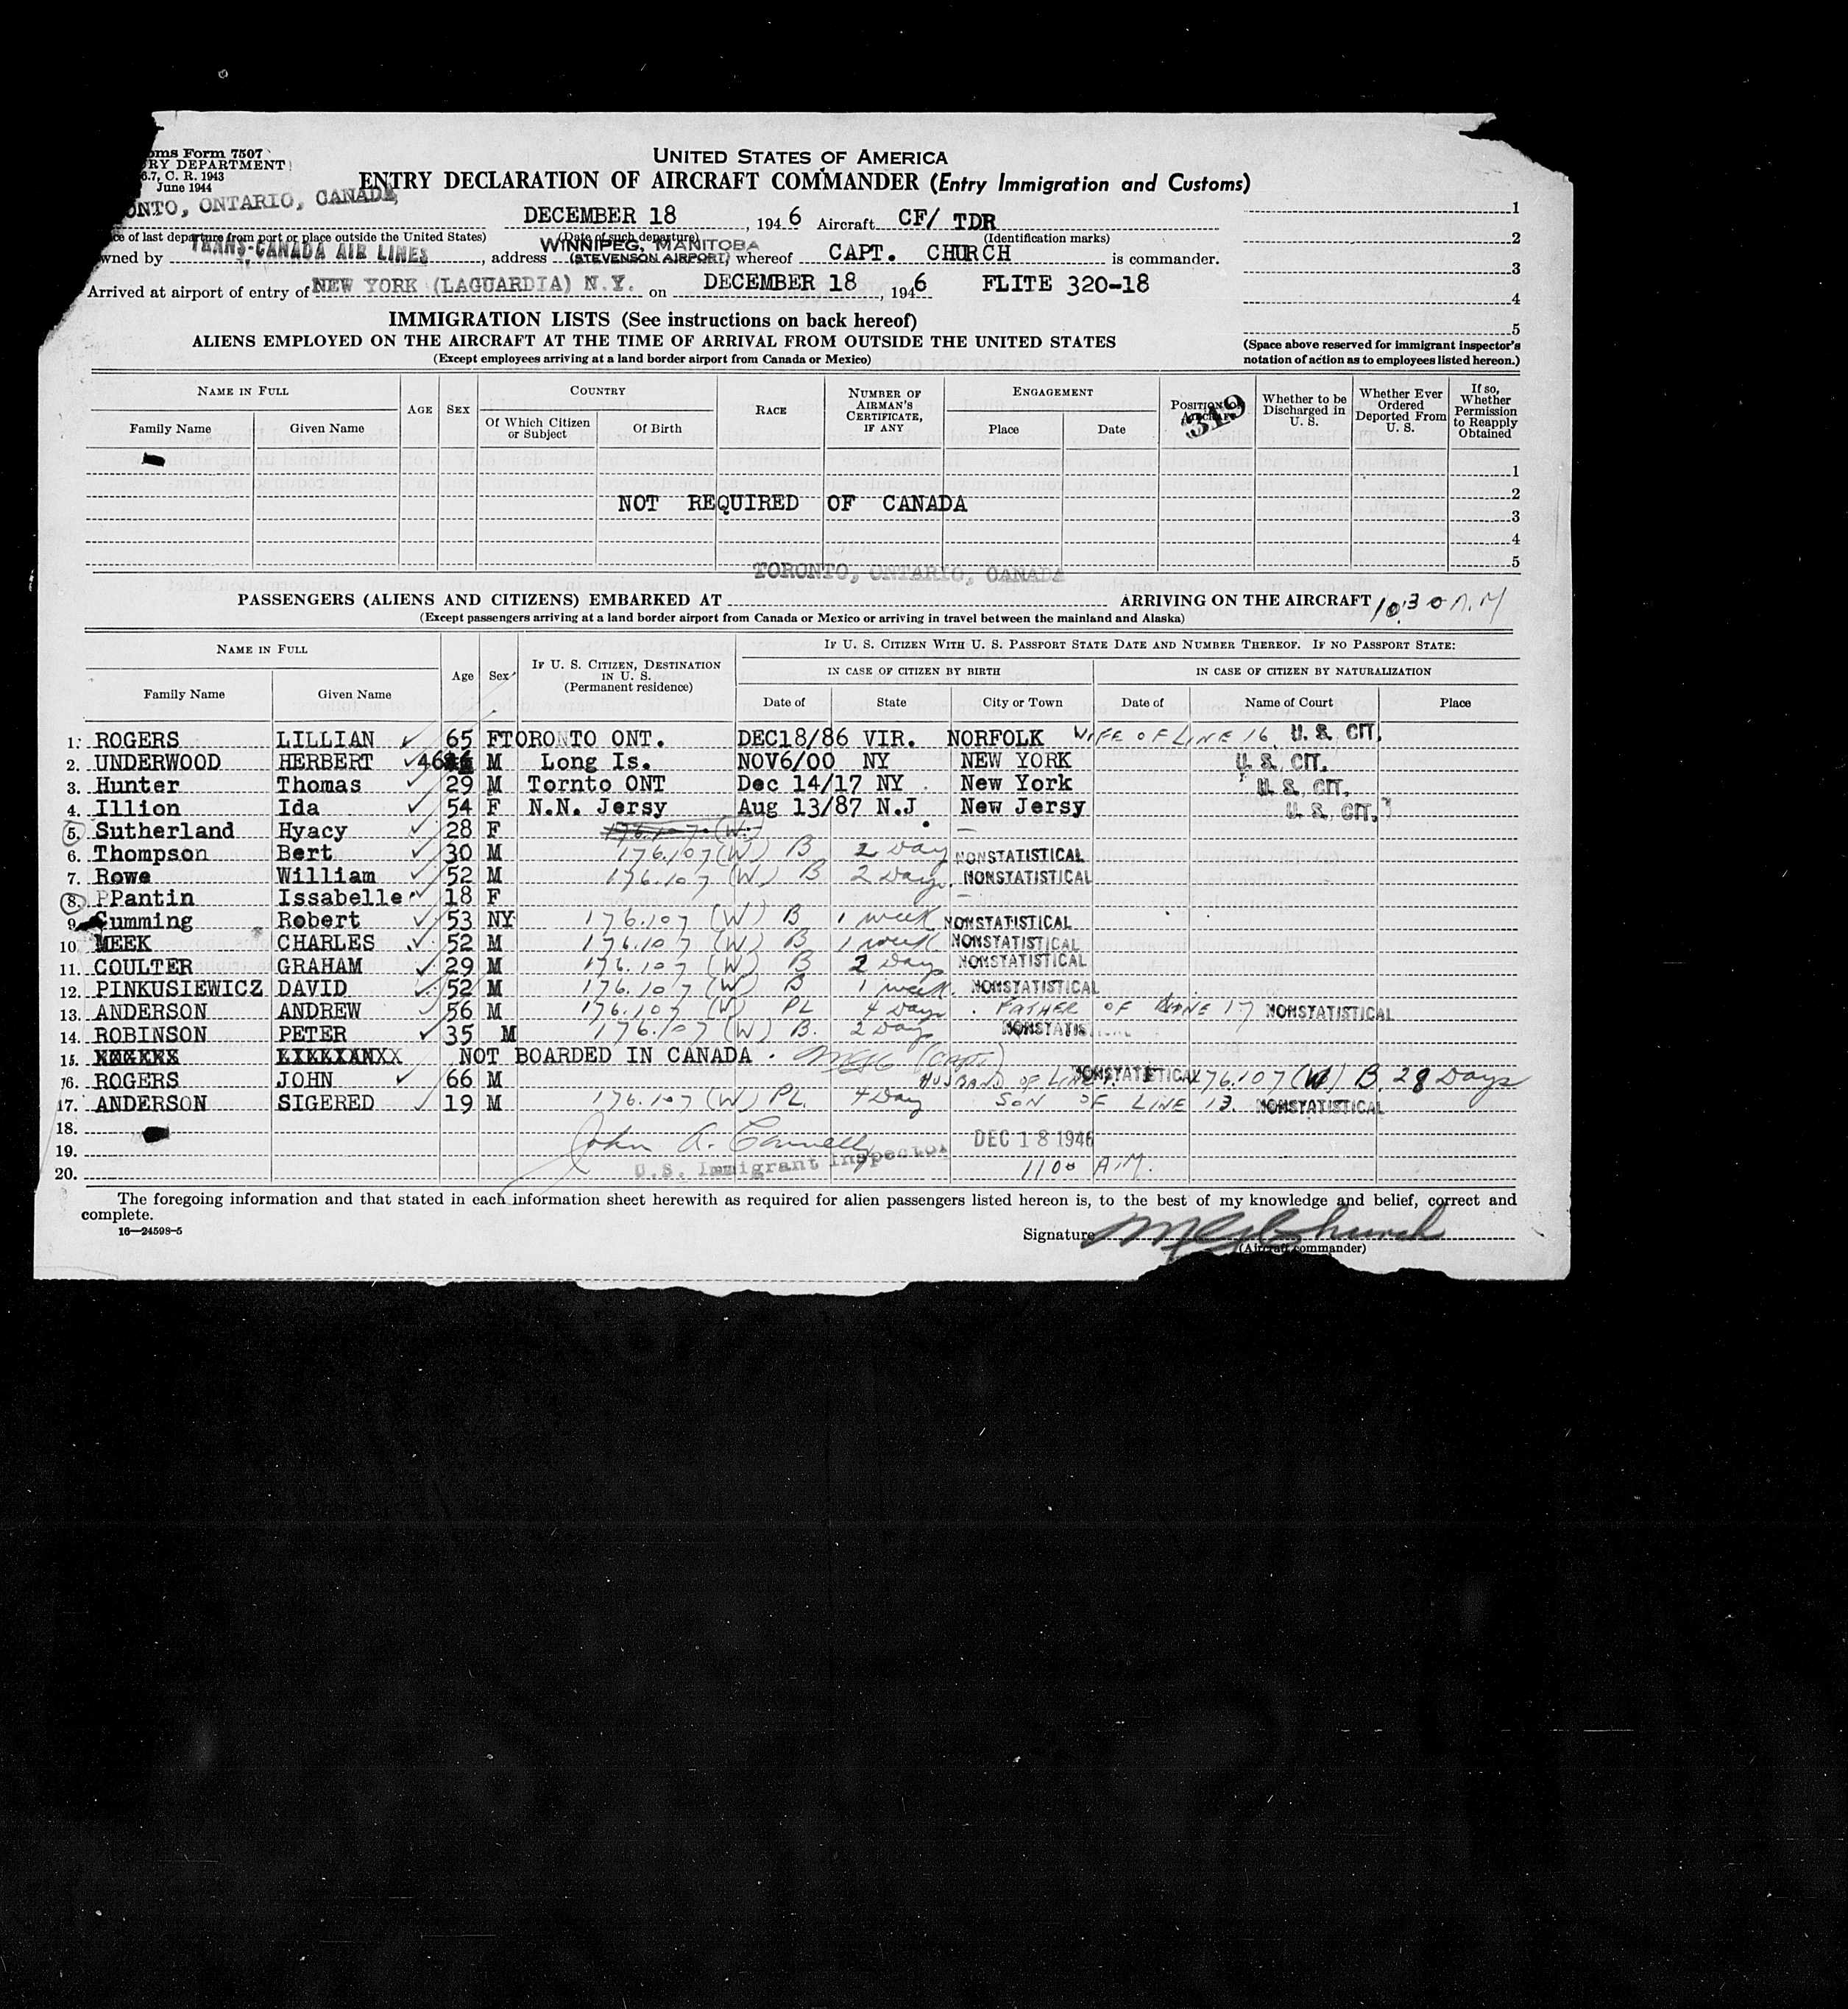 oms Form 7507
RY DEPARTMENT
6.7, C. R. 1943
June 1944
UNITED STATES OF AMERICA
ENTRY DECLARATION OF AIRCRAFT COMMANDER (Entry Immigration and Customs)
ONTO, ONTARIO, CANADA, DECEMBER 18, 1946 Aircraft CF/ TDR
ce of last departure from port or place outside the United States) (Date of such departure) (Identification marks)
wned by TRANS-CANADA AIR LINES, address WINNIPEG, MANITOBA (STEVENSON AIRPORT) whereof CAPT. CHURCH is commander.
Arrived at airport of entry of NEW YORK (LAGUARDIA) N.Y. on DECEMBER 18, 1946 FLITE 320-18
1
2
3
4
5
(Space above reserved for immigrant inspector's notation of action as to employees listed hereon.)
IMMIGRATION LISTS (See instructions on back hereof)
ALIENS EMPLOYED ON THE AIRCRAFT AT THE TIME OF ARRIVAL FROM OUTSIDE THE UNITED STATES
(Except employees arriving at a land border airport from Canada or Mexico)
NAME IN FULL AGE SEX COUNTRY RACE NUMBER OF AIRMAN'S CERTIFICATE, IF ANY ENGAGEMENT POSITION ON AIRCRAFT 319 Whether to be Discharged in U. S. Whether Ever Ordered Deported From U. S. If so, Whether Permission to Reapply Obtained
Family Name Given Name Of Which Citizen or Subject Of Birth Place Date
1
2
NOT REQUIRED OF CANADA
3
4
5
TORONTO, ONTARIO, CANADA
PASSENGERS (ALIENS AND CITIZENS) EMBARKED AT ARRIVING ON THE AIRCRAFT 10:30 A.M
(Except passengers arriving at a land border airport from Canada or Mexico or arriving in travel between the mainland and Alaska)
NAME IN FULL Age Sex IF U. S. CITIZEN, DESTINATION IN U. S. (Permanent residence) IF U. S. CITIZEN WITH U. S. PASSPORT STATE DATE AND NUMBER THEREOF. IF NO PASSPORT STATE:
IN CASE OF CITIZEN BY BIRTH IN CASE OF CITIZEN BY NATURALIZATION
Family Name Given Name Date of State City or Town Date of Name of Court Place
1. ROGERS LILLIAN 65 F TORONTO ONT. DEC18/86 VIR. NORFOLK WIFE OF LINE 16 U. S. CIT.
2. UNDERWOOD HERBERT 46 M Long Is. NOV6/00 NY NEW YORK U. S. CIT.
3. Hunter Thomas 29 M Tornto ONT Dec 14/17 NY New York U. S. CIT.
4. Illion Ida 54 F N.N. Jersy Aug 13/87 N.J New Jersy U. S. CIT.
5. Sutherland Hyacy 28 F 176.107 (W)
6. Thompson Bert 30 M 176.107 (W) B 2 Day NONSTATISTICAL
7. Rowe William 52 M 176.107 (W) B 2 Days. NONSTATISTICAL
8. PPantin Issabelle 18 F
9. Cumming Robert 53 NY 176.107 (W) B 1 week NONSTATISTICAL
10. MEEK CHARLES 52 M 176.107 (W) B 1 week NONSTATISTICAL
11. COULTER GRAHAM 29 M 176.107 (W) B 2 Day NONSTATISTICAL
12. PINKUSIEWICZ DAVID 52 M 176.107 (W) B 1 week. NONSTATISTICAL
13. ANDERSON ANDREW 56 M 176.107 (W) PL 4 Days. FATHER OF LINE 17 NONSTATISTICAL
14. ROBINSON PETER 35 M 176.107 (W) B. 2 Days NONSTATISTICAL
15. NOT BOARDED IN CANADA. (Capt)
16. ROGERS JOHN 66 M HUSBAND OF LINE 1. NONSTATISTICAL 176.107 (W) B. 28 Days
17. ANDERSON SIGERED 19 M 176.107 (W) PL. 4 Day SON OF LINE 13. NONSTATISTICAL
18.
19. John A. Connell DEC 18 1946
20. U.S. Immigrant Inspector 1100 A.M.
The foregoing information and that stated in each information sheet herewith as required for alien passengers listed hereon is, to the best of my knowledge and belief, correct and
complete.
16—24598-5
Signature Church
(Aircraft commander)